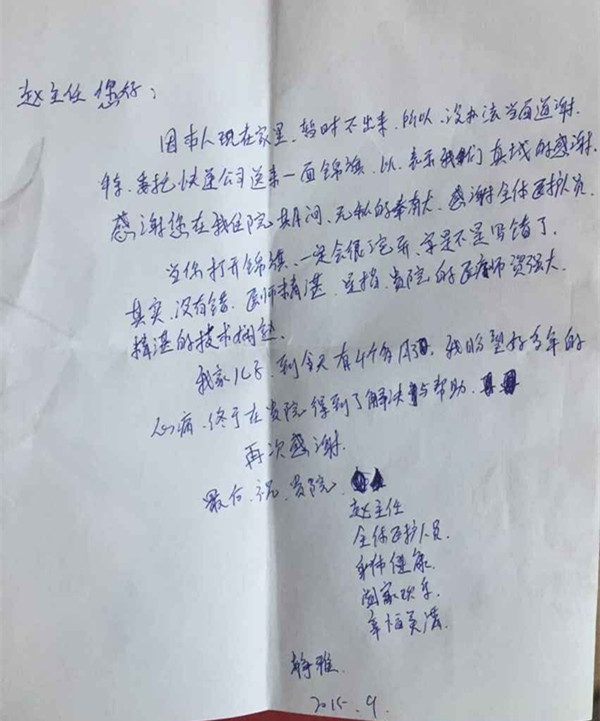 赵主任 您好:
因本人现在家里、暂时不出来、所以、没办法当面道谢.
委托快递公司送来一面锦旗、以、表示我们真诚的感谢.
感谢您在我住院其间、无私的奉献、感谢全体医护人员
当你打开锦旗、一定会很诧异、字是不是写错了.
其实、没有错、医师精湛、是指、贵院的医师资强大.
精湛的技术
我家儿子、到今天有4个多月了、我盼望好多年的
心病、终于在贵院得到了解决与帮助、
再次感谢.
最后、祝、贵院、
赵主任
全体医护人员.
身体健康.
阖家欢乐.
幸福美满.
静雅.
2015.9.